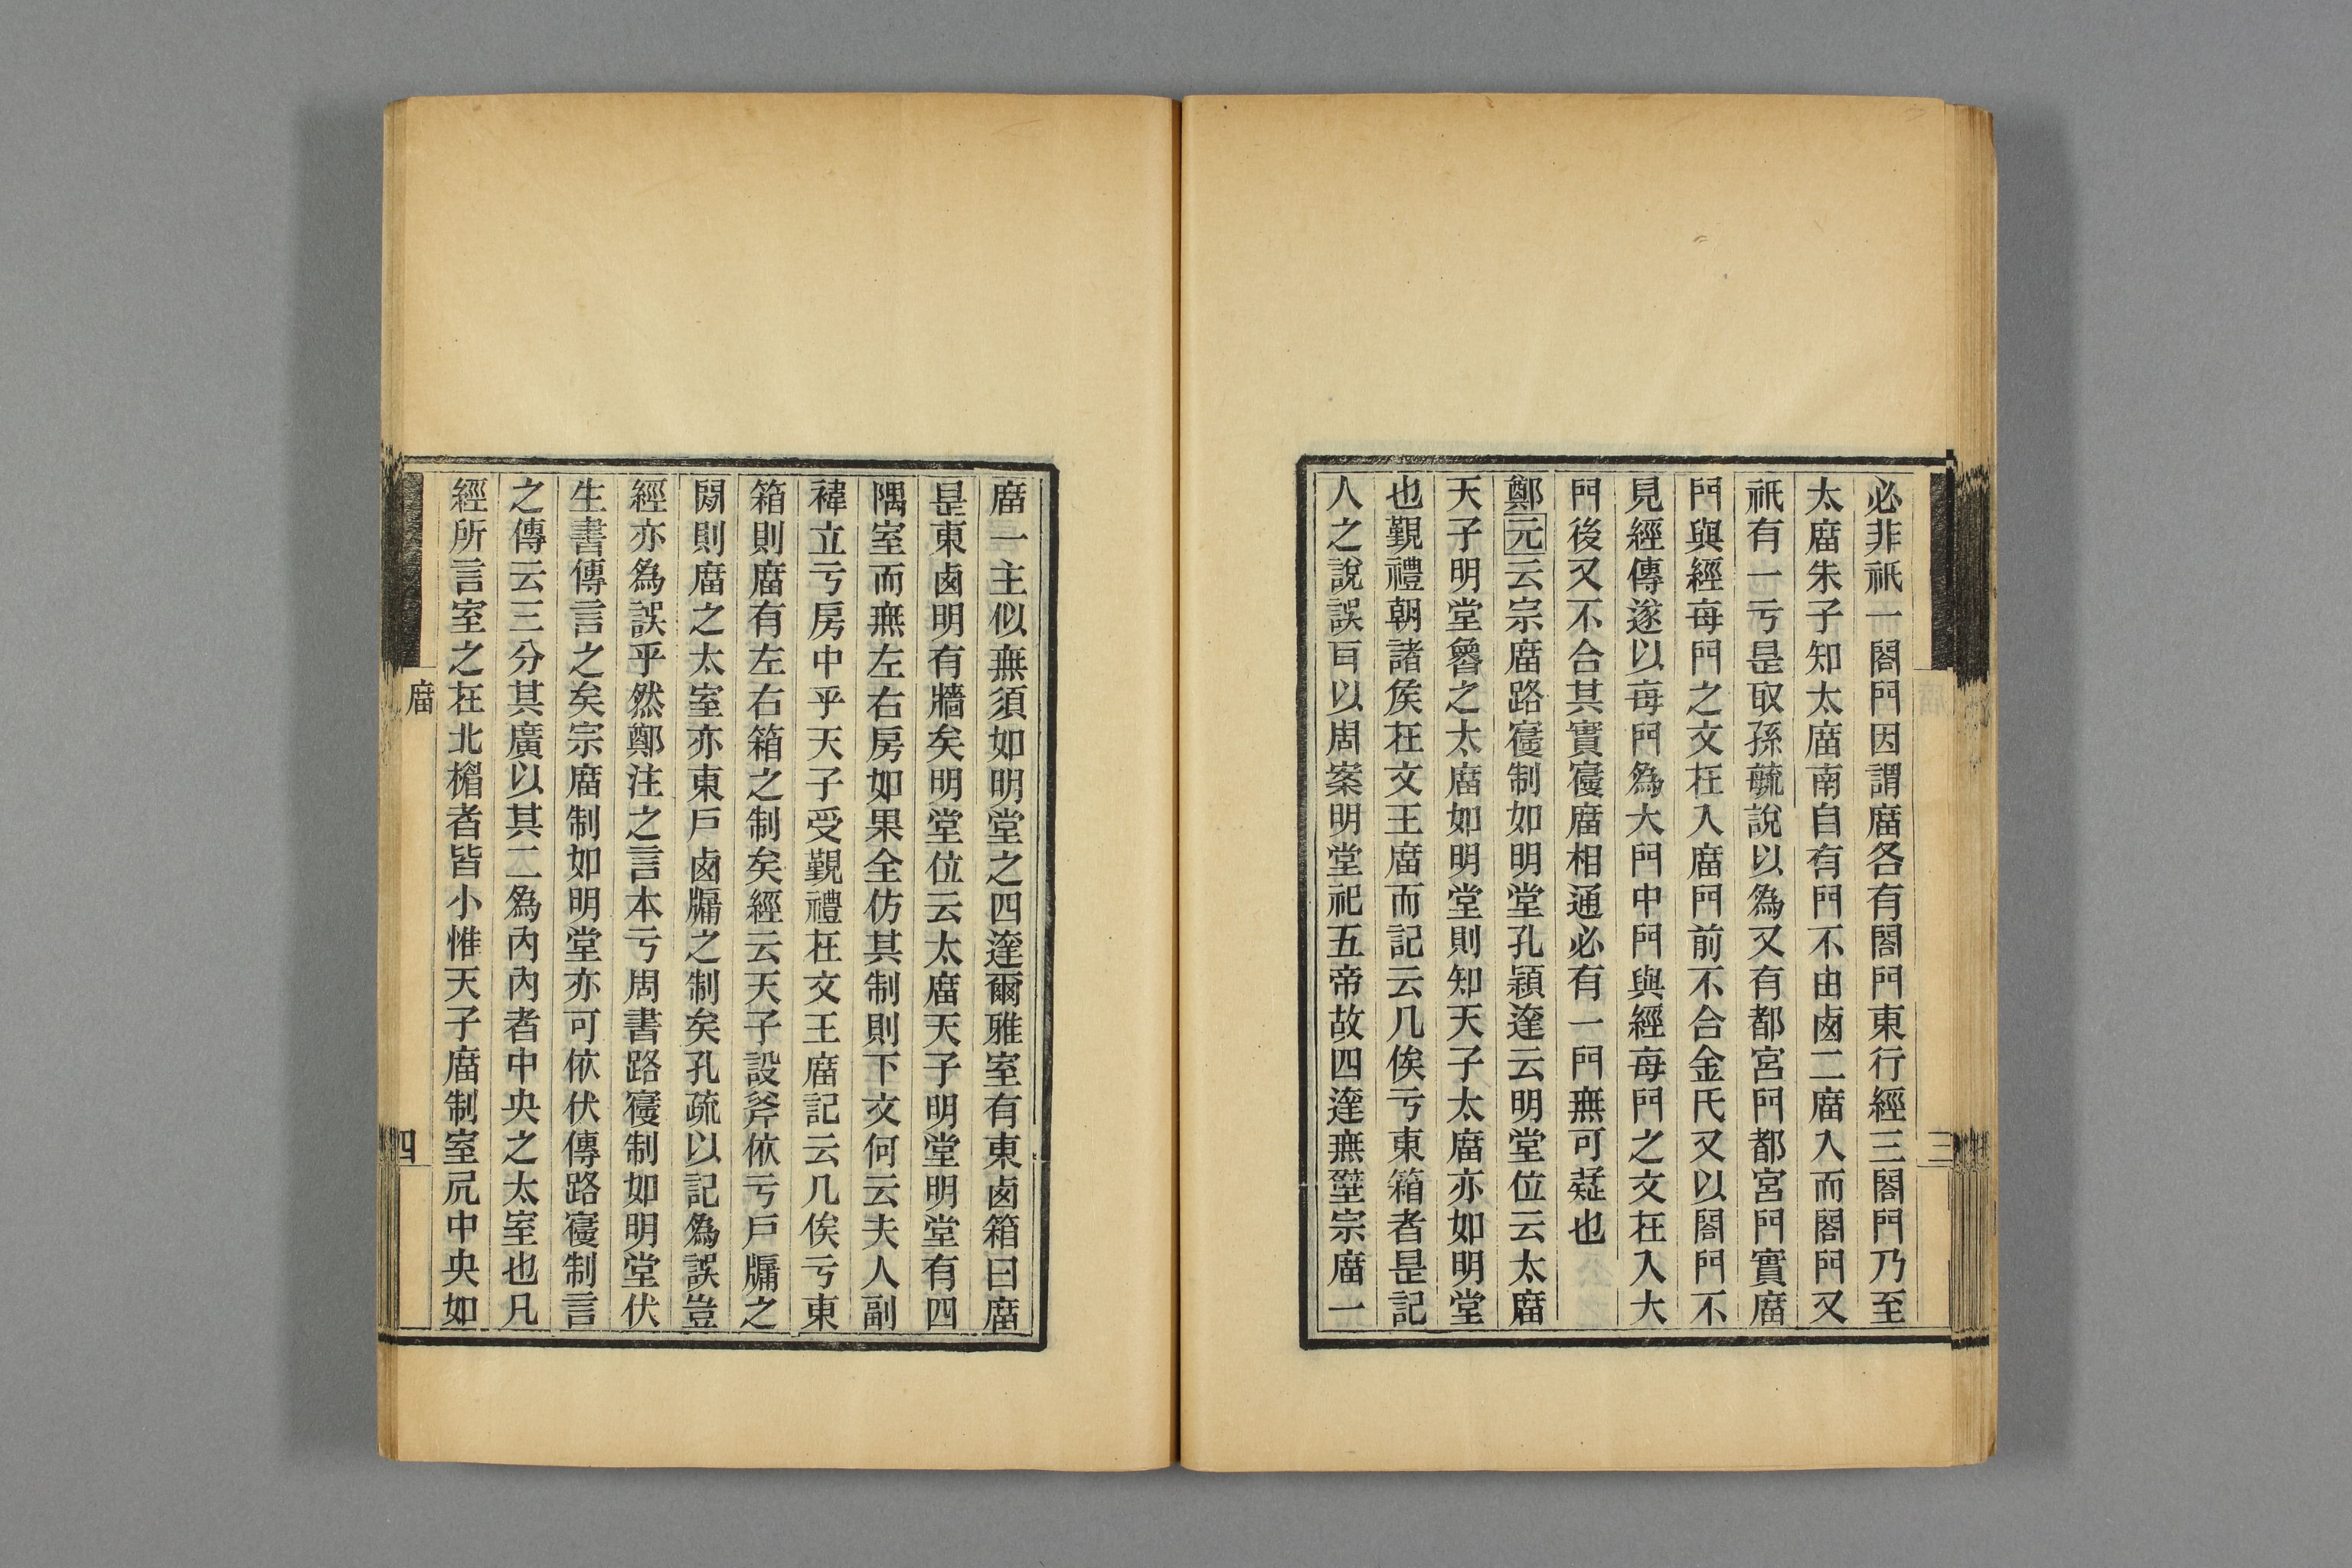 必非祇一閤門因謂庿各有閤門東行經三閤門乃至
太庿朱子知太庿南自有門不由𠧧二庿入而閤門又
祇有一亏是取孫毓說以為又有都宮門都宮門實庿
門與經每門之文在入庿門前不合金氏又以閤門不
見經傳遂以每門為大門中門與經每門之文在入大
門後又不合其實寑庿相通必有一門無可疑也
鄭元云宗庿路寑制如明堂孔穎達云明堂位云太庿
天子明堂魯之太庿如明堂則知天子太庿亦如明堂
也覲禮朝諸矦在文王庿而記云几俟亏東箱者是記
人之說誤耳以周案明堂祀五帝故四達無壁宗庿一
庿一主似無須如明堂之四達爾雅室有東𠧧箱曰庿
是東𠧧明有牆矣明堂位云太庿天子明堂明堂有四
隅室而無左右房如果全仿其制則下文何云夫人副
褘立亏房中乎天子受覲禮在文王庿記云几俟亏東
箱則庿有左右箱之制矣經云天子設斧依亏戶牖之
閒則庿之太室亦東戶𠧧牖之制矣孔疏以記為誤豈
經亦為誤乎然鄭注之言本亏周書路寑制如明堂伏
生書傳言之矣宗庿制如明堂亦可依伏傳路寑制言
之傳云三分其廣以其二為內內者中央之太室也凡
經所言室之在北楣者皆小惟天子庿制室凥中央如
庿
四